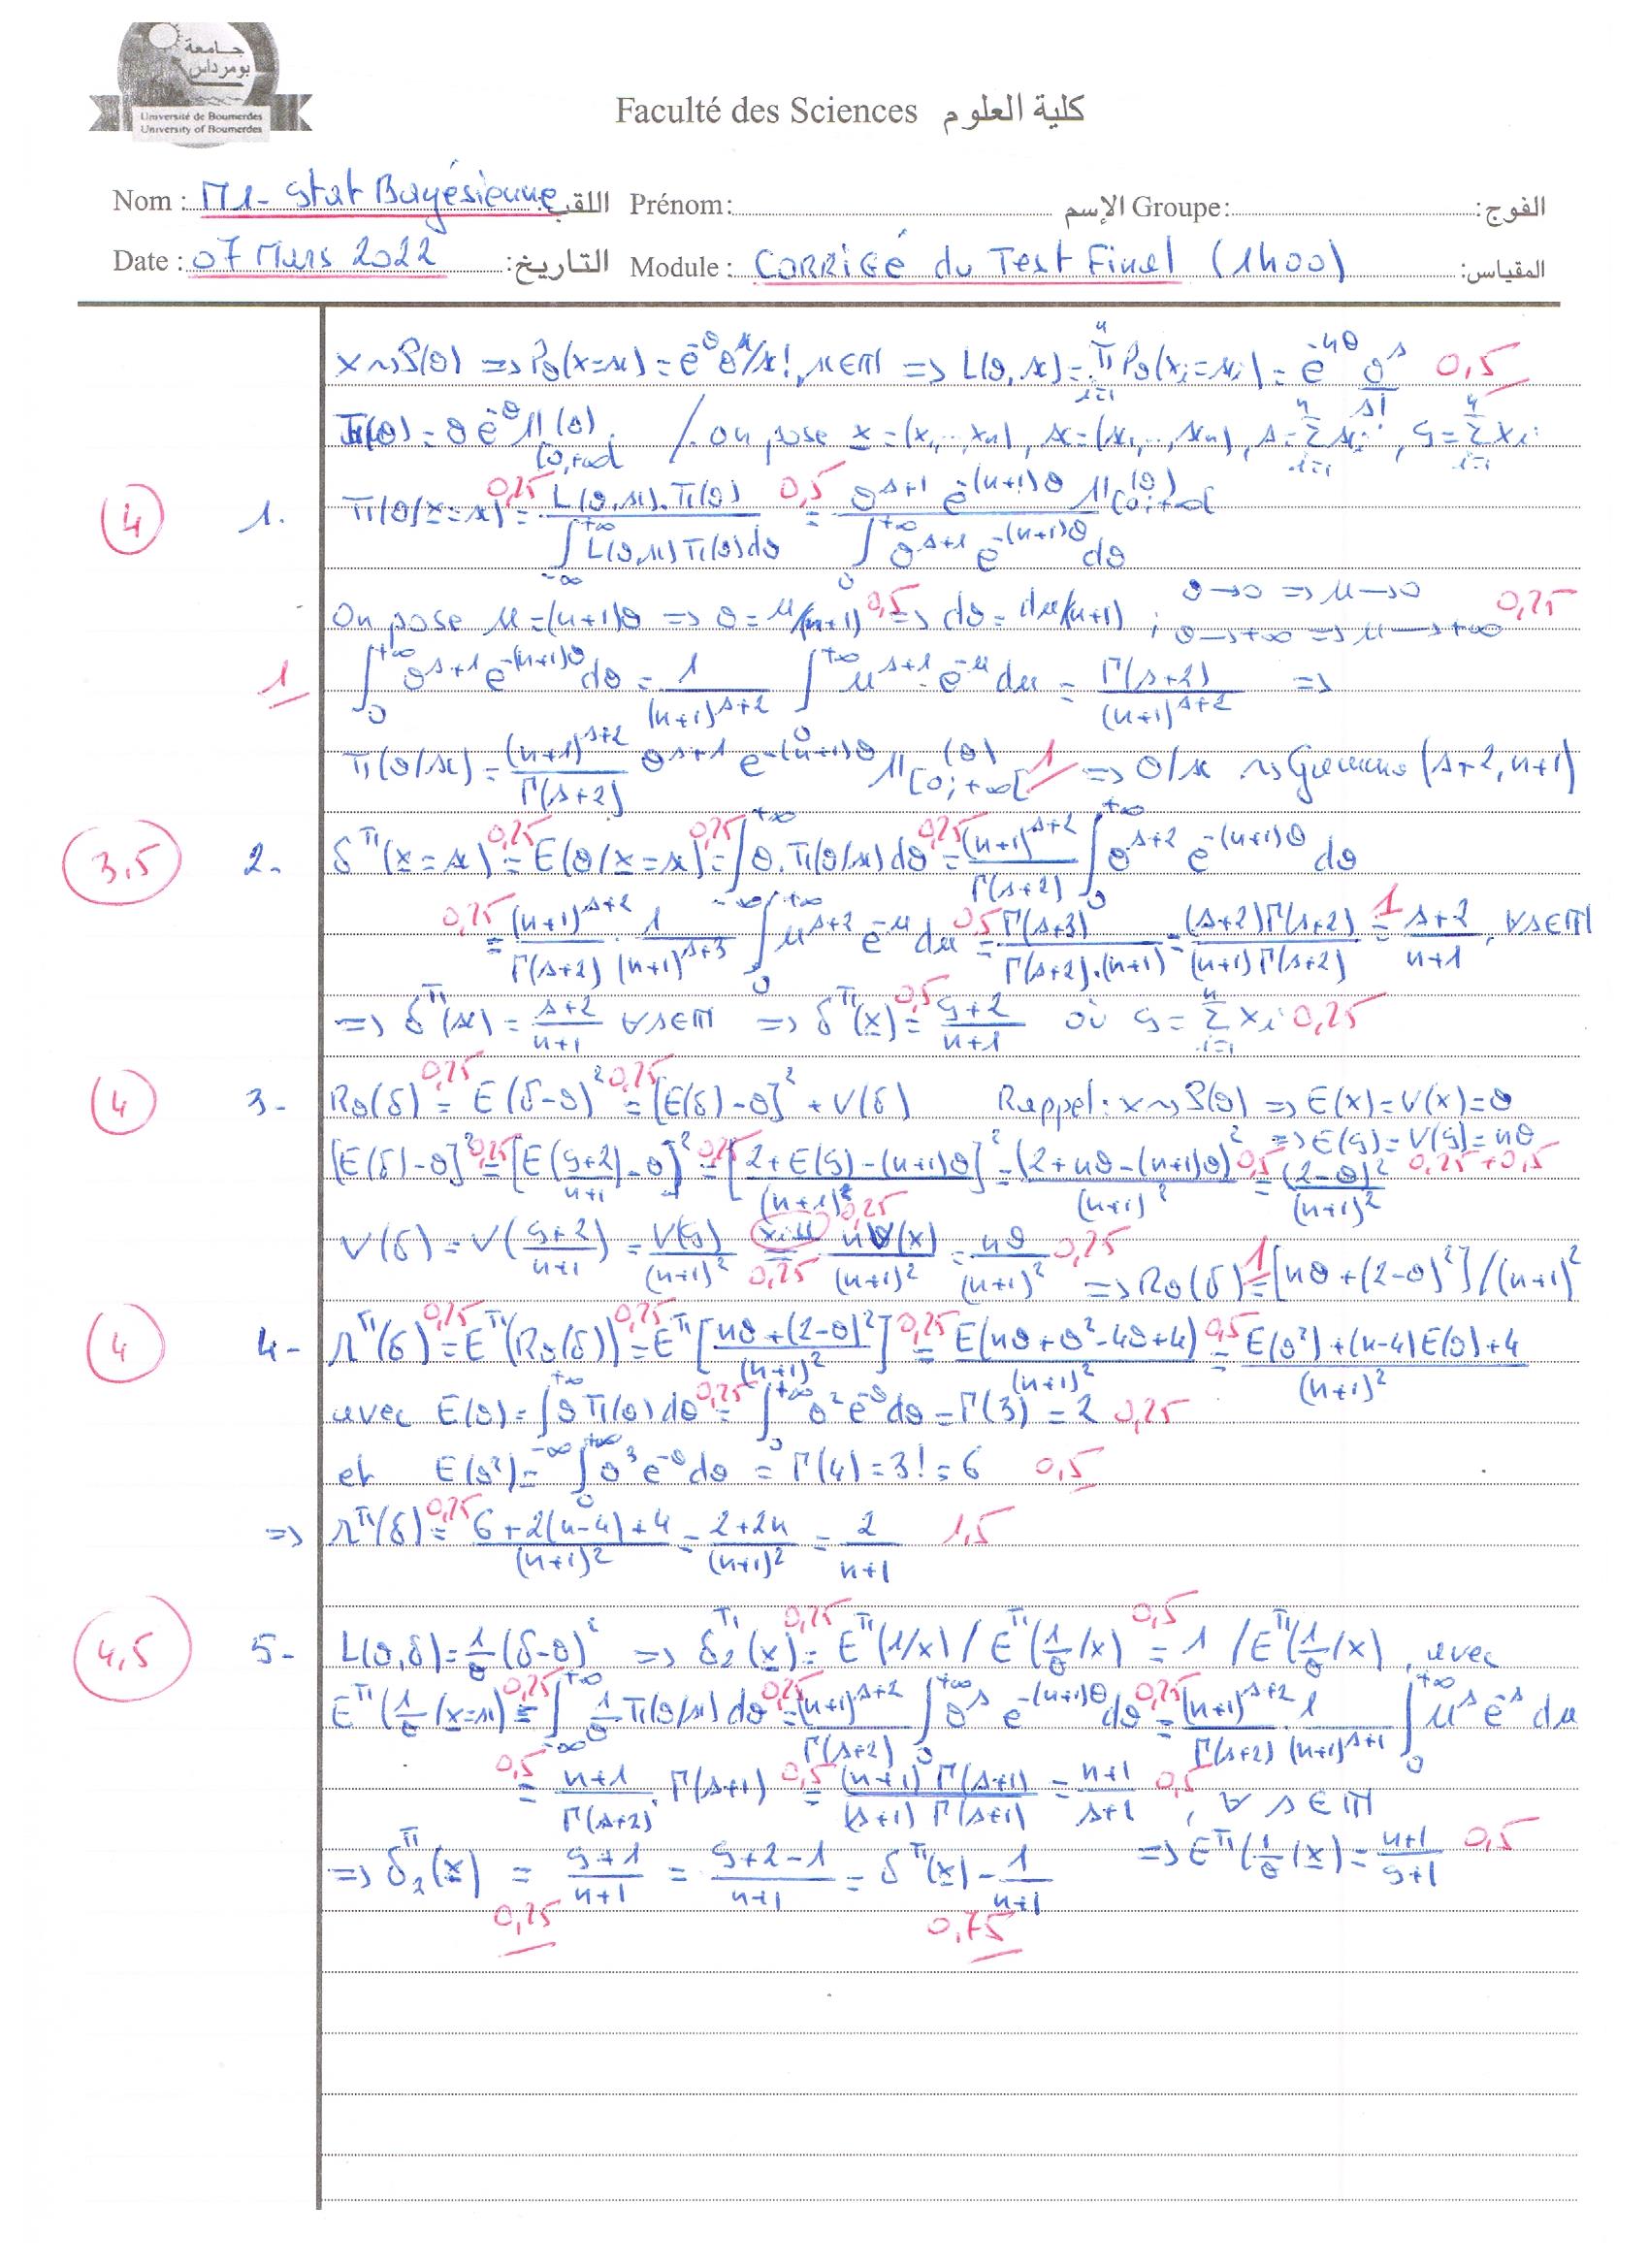 جامعة
بومرداس
Université de Boumerdes
University of Boumerdes
Faculté des Sciences كلية العلوم
Nom : M1 - Stat Bayésienne اللقب Prénom: الإسم Groupe: الفوج:
Date : 07 Mars 2022 التاريخ: Module : CORRIGÉ du Test Final (1h00) المقياس:
X ~> P(θ) => Pθ(X=x) = e^-θ θ^x/x!, x∈IN => L(θ,x) = ∏_{i=1}^n Pθ(Xi=xi) = e^-nθ θ^s/s! 0,5
π(θ) = θ e^-θ 1I_[0,+∞[(θ) / On pose X = (X1...Xn), x = (x1,..,xn), s = Σ_{i=1}^n xi, S = Σ_{i=1}^n Xi
(4) 1. π(θ/X=x) 0,25 = L(θ,x).π(θ) / ∫_{-∞}^{+∞} L(θ,x)π(θ)dθ 0,5 = θ^{s+1} e^{-(n+1)θ} 1I_[0;+∞[(θ) / ∫_0^{+∞} θ^{s+1} e^{-(n+1)θ} dθ
On pose u = (n+1)θ => θ = u/(n+1) 0,5 => dθ = du/(n+1) ; θ→0 => u→0 ; θ→+∞ => u→+∞ 0,25
1 ∫_0^{+∞} θ^{s+1} e^{-(n+1)θ} dθ = 1/(n+1)^{s+2} ∫_0^{+∞} u^{s+1} e^{-u} du = Γ(s+2)/(n+1)^{s+2} =>
π(θ/x) = (n+1)^{s+2}/Γ(s+2) θ^{s+1} e^{-(n+1)θ} 1I_[0;+∞[(θ) 1 => θ/x ~> Gamma (s+2, n+1)
(3,5) 2. δ^π(X=x) 0,25 = E(θ/X=x) 0,25 = ∫_{-∞}^{+∞} θ.π(θ/x) dθ 0,25 = (n+1)^{s+2}/Γ(s+2) ∫_0^{+∞} θ^{s+2} e^{-(n+1)θ} dθ
0,25 = (n+1)^{s+2}/Γ(s+2) . 1/(n+1)^{s+3} ∫_0^{+∞} u^{s+2} e^{-u} du 0,5 = Γ(s+3)/Γ(s+2).(n+1) = (s+2)Γ(s+2)/(n+1)Γ(s+2) 1 = s+2/n+1, ∀s∈IN
=> δ^π(x) = s+2/n+1 ∀s∈IN => δ^π(X) 0,5 = S+2/n+1 où S = Σ_{i=1}^n Xi 0,25
(4) 3- Rθ(δ) 0,25 = E(δ-θ)² 0,25 = [E(δ)-θ]² + V(δ) Rappel : X ~> P(θ) => E(X) = V(X) = θ
=> E(S) = V(S) = nθ 0,25 + 0,5
[E(δ)-θ]² 0,25 = [E(S+2/n+1) - θ]² 0,25 = [2+E(S)-(n+1)θ]²/(n+1)² = (2+nθ-(n+1)θ)²/(n+1)² 0,5 = (2-θ)²/(n+1)²
V(δ) = V(S+2/n+1) = V(S)/(n+1)² Xi 0,25 = nV(X)/(n+1)² 0,25 = nθ/(n+1)² 0,25 => Rθ(δ) 1 = [nθ+(2-θ)²]/(n+1)²
(4) 4- r^π(δ) 0,25 = E^π(Rθ(δ)) 0,25 = E^π[nθ+(2-θ)²/(n+1)²] 0,25 = E(nθ+θ²-4θ+4)/(n+1)² 0,5 = E(θ²)+(n-4)E(θ)+4/(n+1)²
avec E(θ) = ∫_{-∞}^{+∞} θπ(θ)dθ 0,25 = ∫_0^{+∞} θ² e^-θ dθ = Γ(3) = 2 0,25
et E(θ²) = ∫_0^{+∞} θ³ e^-θ dθ = Γ(4) = 3! = 6 0,5
=> r^π(δ) 0,25 = 6+2(n-4)+4/(n+1)² = 2+2n/(n+1)² = 2/n+1 1,5
(4,5) 5- L(θ,δ) = 1/θ (δ-θ)² => δ₂^π(X) 0,25 = E^π(1/X) / E^π(1/θ /X) 0,5 = 1 / E^π(1/θ /X), avec
E^π(1/θ /X=x) 0,25 = ∫_{-∞}^{+∞} 1/θ π(θ/x) dθ 0,25 = (n+1)^{s+2}/Γ(s+2) ∫_0^{+∞} θ^s e^{-(n+1)θ} dθ 0,25 = (n+1)^{s+2}/Γ(s+2) 1/(n+1)^{s+1} ∫_0^{+∞} u^s e^{-s} du
0,5 = n+1/Γ(s+2) . Γ(s+1) 0,5 = (n+1) Γ(s+1)/(s+1) Γ(s+1) = n+1/s+1 0,5 , ∀ s∈IN
=> δ₂^π(X) = S+1/n+1 = S+2-1/n+1 = δ^π(X) - 1/n+1 => E^π(1/θ /X) = n+1/S+1 0,5
0,25 0,75